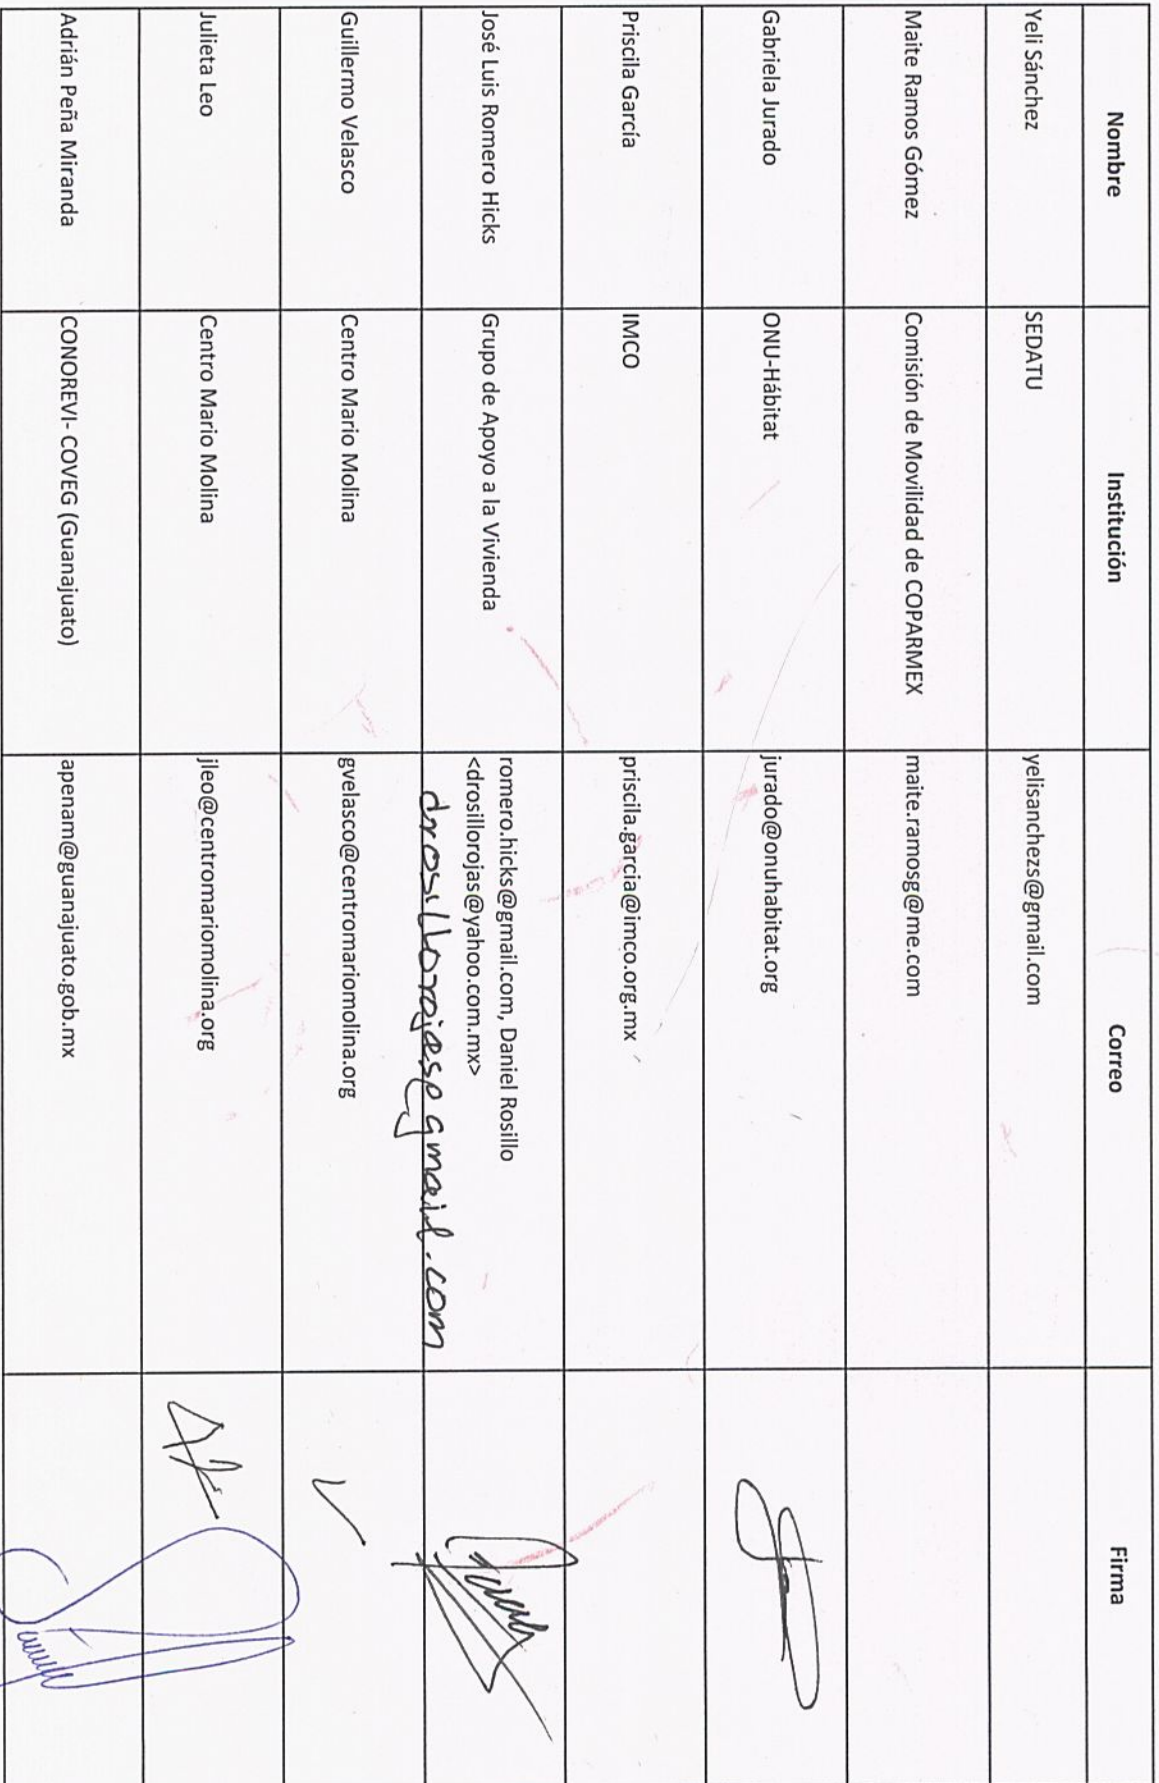 Nombre Institución Correo Firma
Yeli Sánchez SEDATU yelisanchezs@gmail.com
Maite Ramos Gómez Comisión de Movilidad de COPARMEX maite.ramosg@me.com
Gabriela Jurado ONU-Hábitat jurado@onuhabitat.org
Priscila García IMCO priscila.garcia@imco.org.mx
José Luis Romero Hicks Grupo de Apoyo a la Vivienda romero.hicks@gmail.com, Daniel Rosillo
<drosillorojas@yahoo.com.mx>
drosillorojas@gmail.com
Guillermo Velasco Centro Mario Molina gvelasco@centromariomolina.org
Julieta Leo Centro Mario Molina jleo@centromariomolina.org
Adrián Peña Miranda CONOREVI- COVEG (Guanajuato) apenam@guanajuato.gob.mx